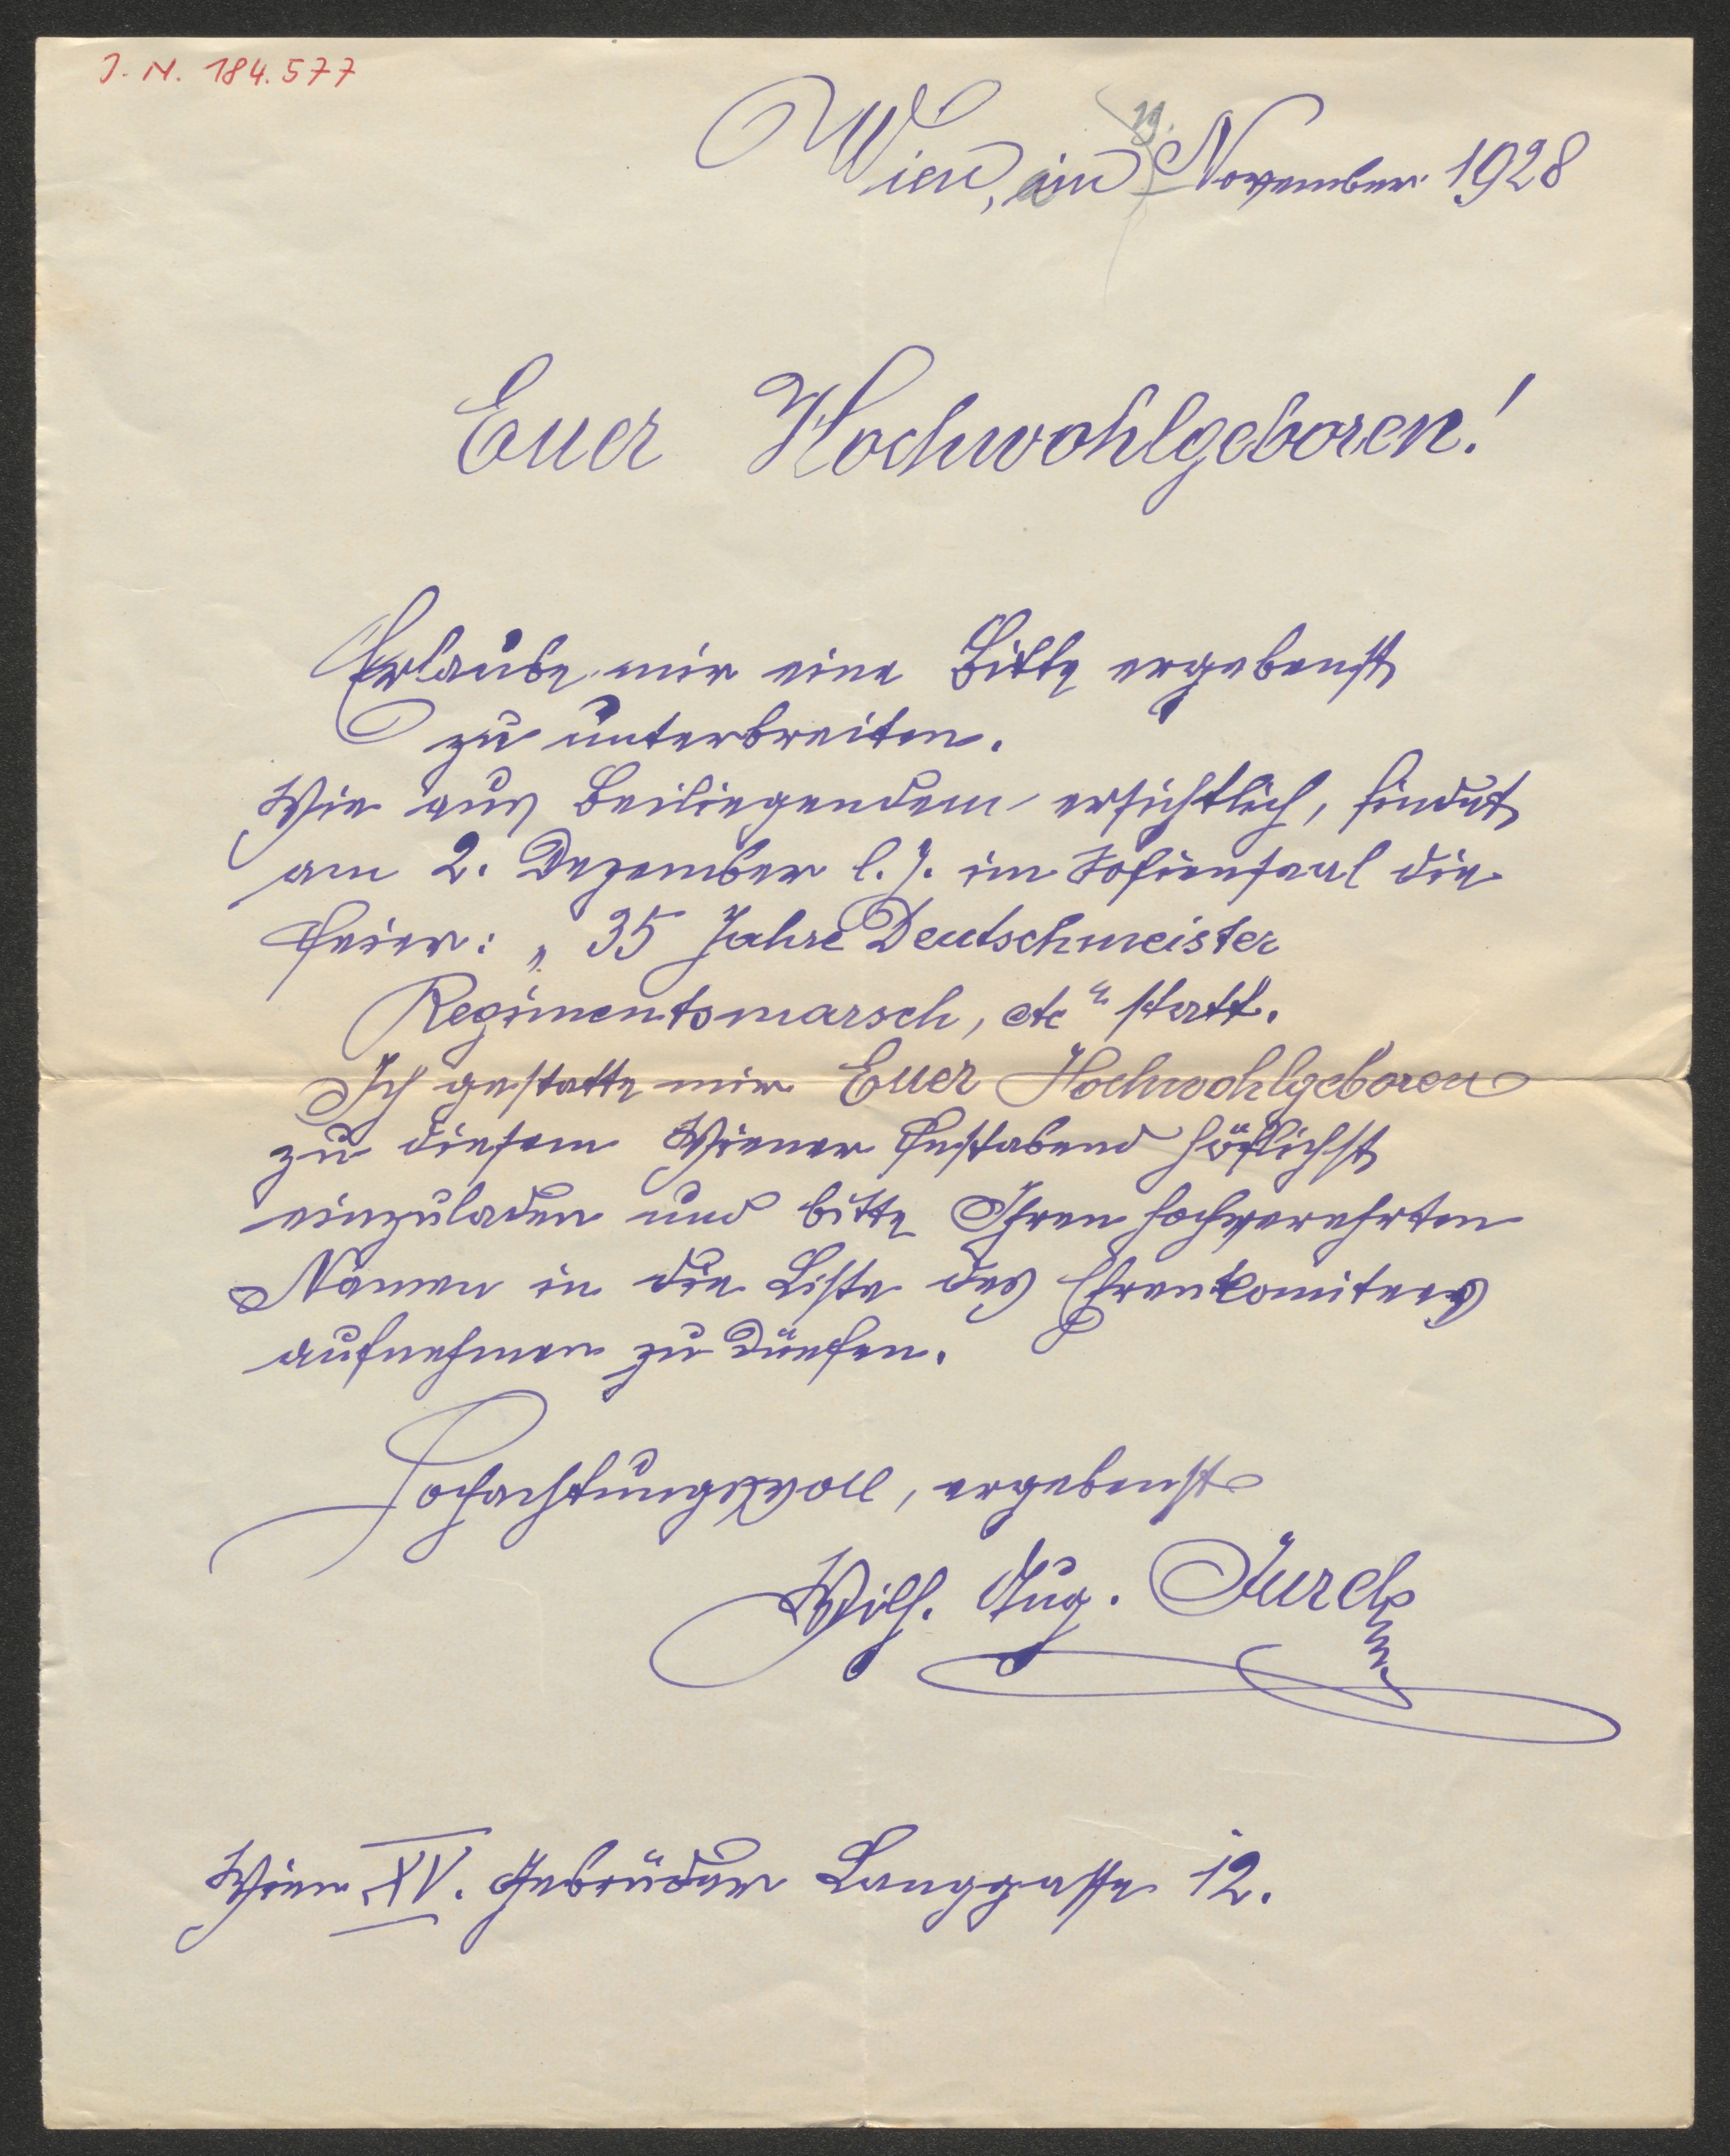 J. N. 184.577
Wien, im 19. November 1928
Euer Hochwohlgeboren!
Erlaube mir eine Bitte ergebenst
zu unterbreiten.
Wie aus Beiliegendem ersichtlich, findet
am 2. Dezember l. J. im Sofiensaal die
Feier: „35 Jahre Deutschmeister
Regimentsmarsch, etc“ statt.
Ich gestatte mir Euer Hochwohlgeboren
zu diesem Wiener Festabend höflichst
einzuladen und bitte Ihren hochverehrten
Namen in die Liste des Ehrenkomitees
aufnehmen zu dürfen.
Hochachtungsvoll, ergebenst
Wilh. Aug. Jurek
Wien XV. Gebrüder Langgasse 12.